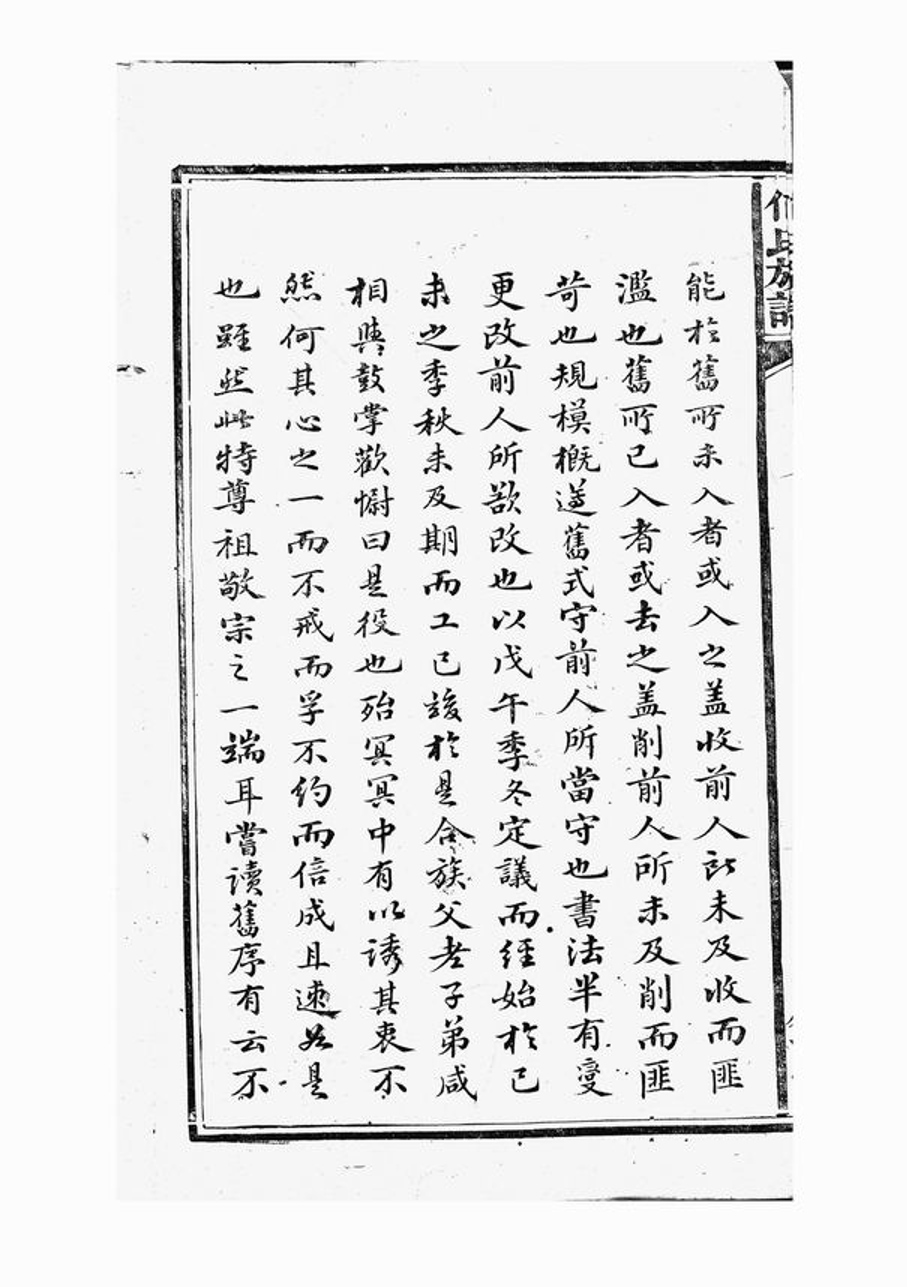 能於舊所未入者或入之盖收前人所未及收而匪
濫也舊所已入者或去之盖削前人所未及削而匪
苛也規模概遵舊式守前人所當守也書法半有變
更改前人所欲改也以戊午季冬定議而經始於己
未之季秋未及期而工已竣於是合族父老子弟咸
相與鼓掌歡慰曰是役也殆冥冥中有以誘其衷不
然何其心之一而不戒而孚不約而信成且速若是
也雖然此特尊祖敬宗之一端耳嘗讀舊序有云不
氏族譜